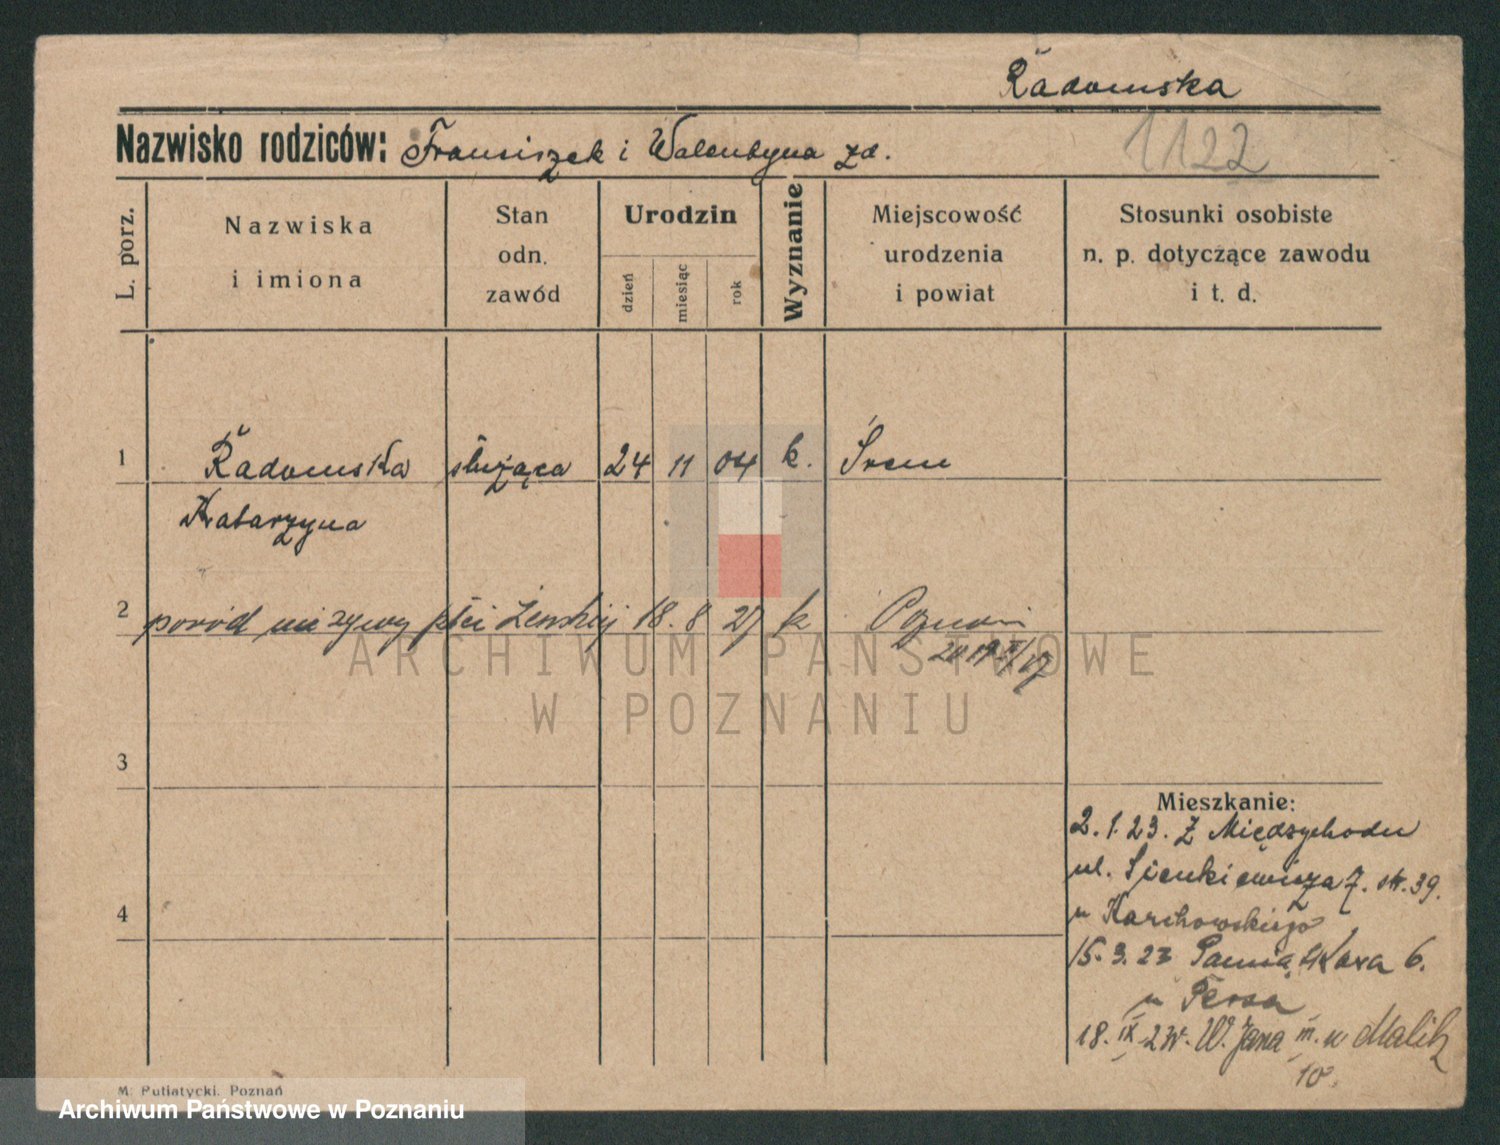 Radomska
Nazwisko rodziców: Franciszek i Walentyna zd.
1122
L. porz.
Nazwiska
i imiona
Stan
odn.
zawód
Urodzin
dzień
miesiąc
rok
Wyznanie
Miejscowość
urodzenia
i powiat
Stosunki osobiste
n. p. dotyczące zawodu
i t. d.
1 Radomska służąca 24 11 04 k. Śrem
Katarzyna
2 poród nieżywy płci żeńskiej 18. 8 27 k Poznań
ARCHIWUM PAŃSTWOWE
W POZNANIU
3
Mieszkanie:
2. 1. 23. Z Międzychodu
ul. Sienkiewicza 7. str. 39.
u Karchowskiego
4
15. 3. 23 6.
u
18. IX W. Jana III. u Malik
10.
M. Putiatycki. Poznań
Archiwum Państwowe w Poznaniu